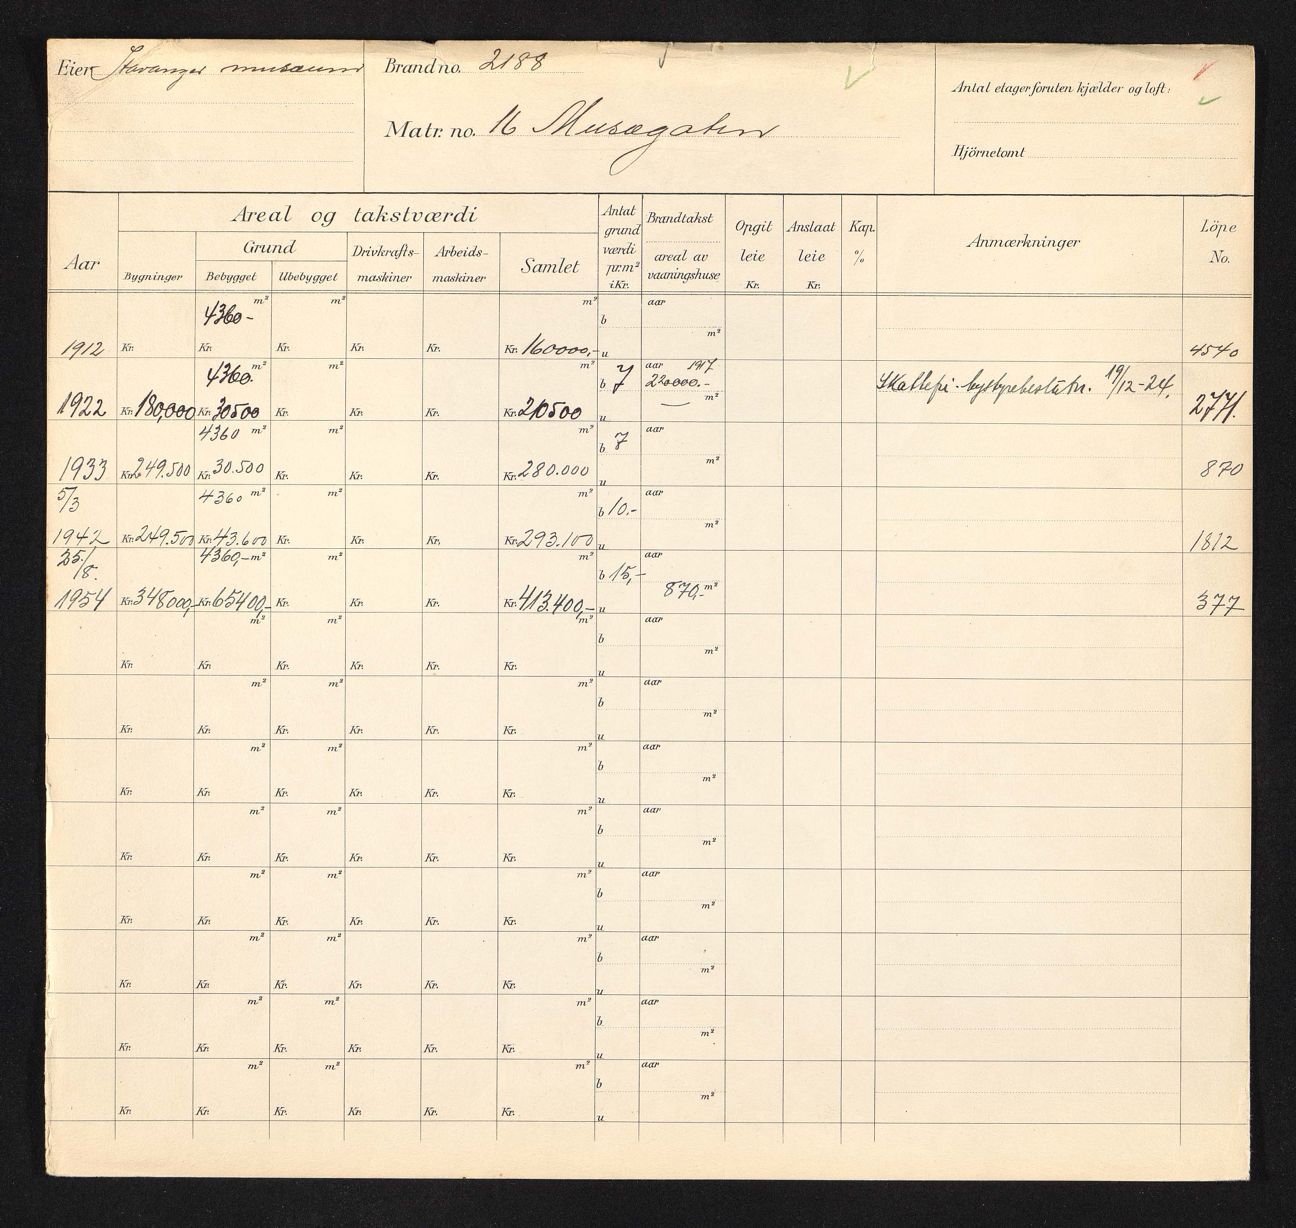 Eier Stavanger museum
Brand no. 2188
Matr. no. 16 Musægaten
Antal etager foruten kjælder og loft:
Hjörnetomt
Aar
Areal og takstværdi
Bygninger
Grund
Bebygget
Ubebygget
Drivkrafts-
maskiner
Arbeids-
maskiner
Samlet
Antat
grund
værdi
pr. m²
i Kr.
Brandtakst
areal av
vaaningshuse
Opgit
leie
Kr.
Anslaat
leie
Kr.
Kap.
%
Anmærkninger
Löpe
No.
4360- m² m² m² b aar
m²
1912 Kr. Kr. Kr. Kr. Kr. Kr. 160000,- u 4540
4360. m² m² m² b 7 aar 1917
220000.- m² Skattefri. bystyrebeslutn. 19/12-24.
1922 Kr. 180,000 Kr. 30500 Kr. Kr. Kr. Kr. 210500 u 2771.
4360 m² m² m² b 7 aar
m²
1933 Kr. 249.500 Kr. 30.500 Kr. Kr. Kr. Kr. 280.000 u 870
5/3 4360 m² m² m² b 10.- aar
m²
1942 Kr. 249.500 Kr. 43.600 Kr. Kr. Kr. Kr. 293.100 u 1812
25/8. 4360,- m² m² m² b 15,- aar
870,- m²
1954 Kr. 348000,- Kr. 65400,- Kr. Kr. Kr. Kr. 413.400,- u 377
m² m² m² b aar
m²
Kr. Kr. Kr. Kr. Kr. Kr. u
m² m² m² b aar
m²
Kr. Kr. Kr. Kr. Kr. Kr. u
m² m² m² b aar
m²
Kr. Kr. Kr. Kr. Kr. Kr. u
m² m² m² b aar
m²
Kr. Kr. Kr. Kr. Kr. Kr. u
m² m² m² b aar
m²
Kr. Kr. Kr. Kr. Kr. Kr. u
m² m² m² b aar
m²
Kr. Kr. Kr. Kr. Kr. Kr. u
m² m² m² b aar
m²
Kr. Kr. Kr. Kr. Kr. Kr. u
m² m² m² b aar
m²
Kr. Kr. Kr. Kr. Kr. Kr. u